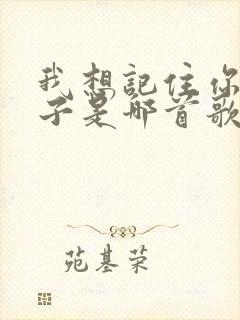 我想記住你
子是那首歌
苑基荣